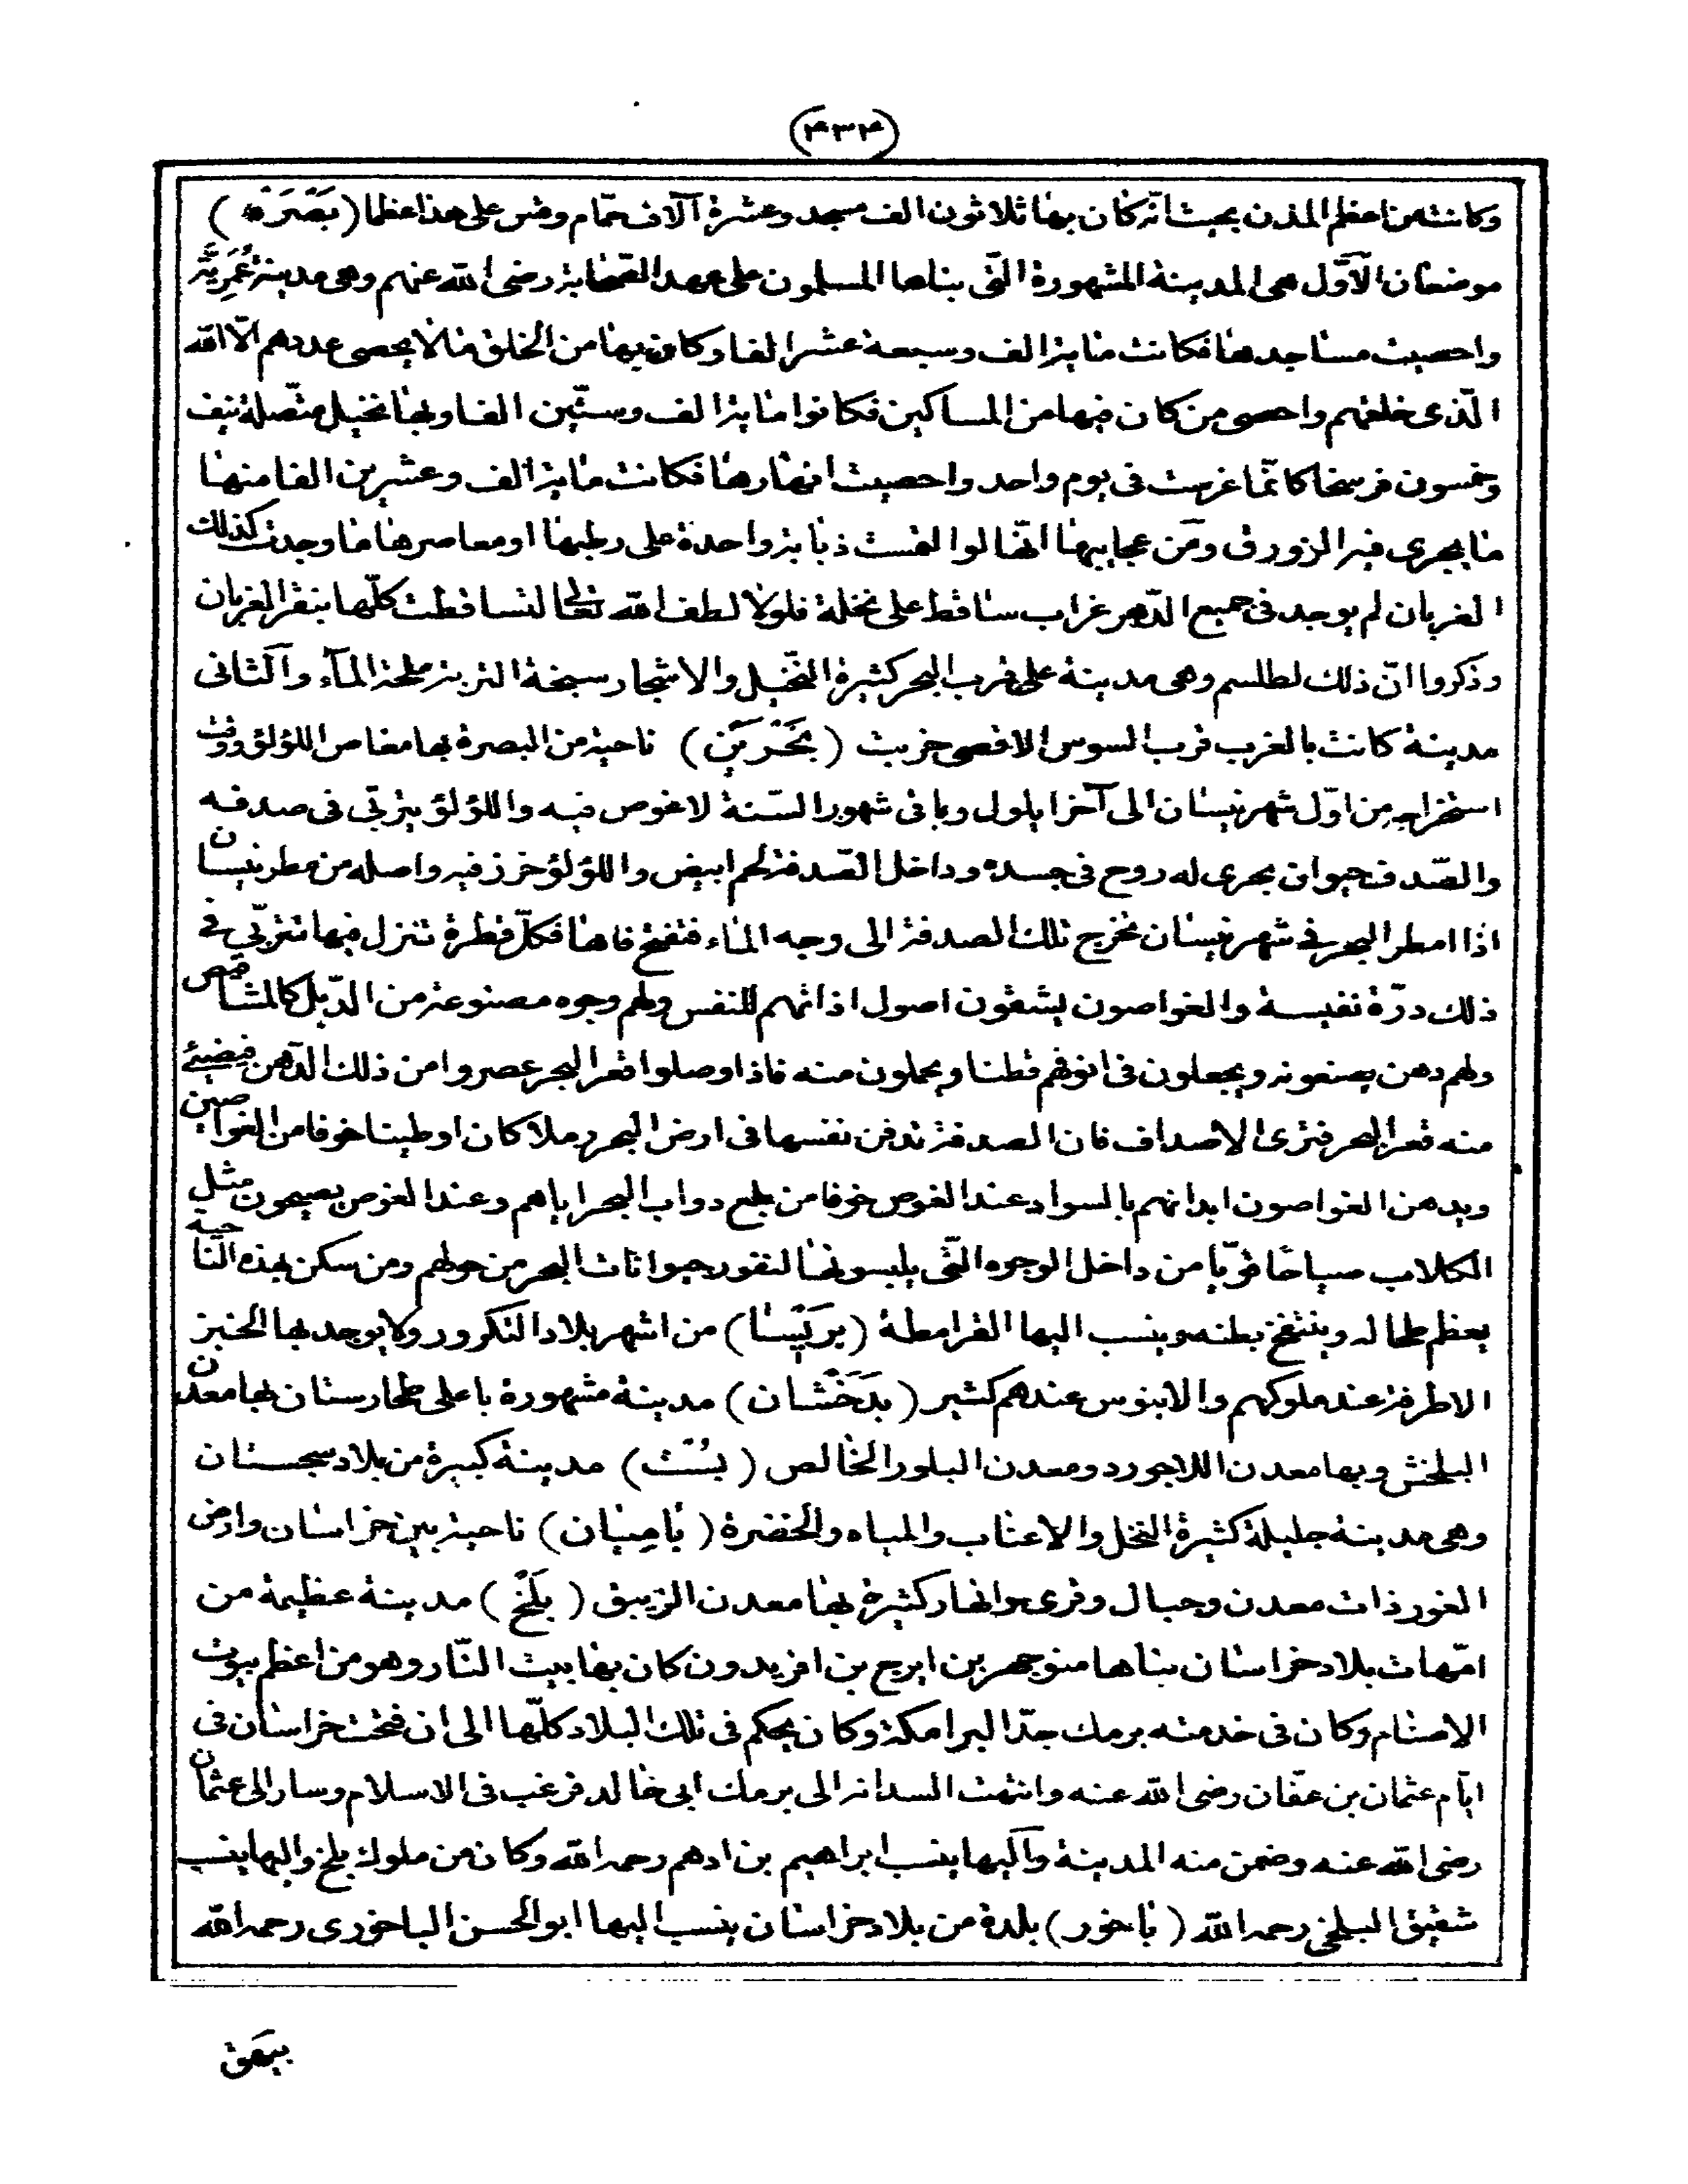 (۴۳۴)
وكانت من اعظم المدن بحيث انّه كان بها ثلاثون الف مسجد وعشرة آلاف حمّام وقس على هذا عظما (بَصْرَه)
موضعان الاَوّل هى المدينة المشهورة الّتى بناها المسلمون على عهد الصّحابة رضى الله عنهم وهى مدينة عُمَرِيَّة
واحصيت مساجدها فكانت مائة الف وسبعة عشر الفا وكان بها من الخلق ما لا يحصى عددهم الّا الله
الّذى خلقهم واحصى من كان فيها من المساكين فكانوا مائة الف وستّين الفا وبها نخيل متّصلة نيف
وخمسون فرسخا كانّما غرست فى يوم واحد واحصيت انهارها فكانت مائة الف وعشرين الفا منها
ما يجرى فيه الزورق ومن عجايبها انّها لوا لفست ذبابة واحدة على رطبها او معاصرها ما وجدت كذلك
الغربان لم يوجد فى جميع الدّهر غراب ساقط على نخلة فلولا لطف الله تعالى لتساقطت كلّها بنقر الغربان
وذكروا انّ ذلك لطلسم وهى مدينة على قرب البحر كثيرة النّخيل والاشجار سبخة التربة ملحة المآء وآلثانى
مدينة كانت بالغرب قرب السوس الاقصى خربت (بَحْرَيْن) ناحية من البصرة بها مغاص اللؤلؤ ووقت
استخراجه من اوّل شهر نيسان الى آخر ايلول وباقى شهور السّنة لا غوص فيه واللؤلؤ يتربّى فى صدفه
والصّدف حيوان يجرى له روح فى جسده وداخل الصّدفة لحم ابيض واللؤلؤ خرز فيه واصله من مطر نيسان
اذا امطر البحر فى شهر نيسان تخرج تلك الصدفة الى وجه الماء فتفتح فاها فكلّ قطرة تنزل فيها تتربّى فى
ذلك درّة نفيسة والغواصون يشقون اصول اذانهم للنفس ولهم وجوه مصنوعة من الذّبل كالمشاقص
ولهم دهن يصنعونه ويجعلون فى انوفهم قطنا ويحملون منه فاذا وصلوا قعر البحر عصروا من ذلك الدّهن فيضيئ
منه قعر البحر فترى الاصداف فان الصدفة تدفن نفسها فى ارض البحر رملا كان او طينا خوفا من الغواصين
ويدهن الغواصون ابدانهم بالسواد عند الغوص خوفا من بلع دواب البحر اياهم وعند الغوص يصيحون مثل
الكلاب صياحًا قويّا من داخل الوجوه الّتى يلبسونها لنفور حيوانات البحر من حولهم ومن سكن بهذه النّاحية
يعظم طحاله وينتفخ بطنه وينسب اليها القرامطة (بريَيسا) من اشهر بلاد التكرور ولا يوجد بها الخبز
الا طرفة عند ملوكهم والابنوس عندهم كثير (بَدَخْشَان) مدينة مشهورة باعلى طخارستان بها معدن
البلخش وبها معدن اللاجورد ومعدن البلور الخالص (بُسْت) مدينة كبيرة من بلاد سجستان
وهى مدينة جليلة كثيرة النخل والاعناب والمياه والخضرة (بَامِيَان) ناحية بين خراسان وارض
الغور ذات معدن وجبال وقرى وانهار كثيرة بها معدن الزيبق (بَلْخ) مدينة عظيمة من
امّهات بلاد خراسان بناها منوجهر بن ايرج بن افريدون كان بها بيت النّار وهو من اعظم بيوت
الاصنام وكان فى خدمته برمك جدّ البرامكة وكان يحكم فى تلك البلاد كلّها الى ان فتحت خراسان فى
ايّام عثمان بن عفّان رضى الله عنه وانتهت السدانة الى برمك ابى خالد فرغب فى الاسلام وسار الى عثمان
رضى الله عنه وضمن منه المدينة واليها ينسب ابراهيم بن ادهم رحمه الله وكان من ملوك بلخ واليها ينسب
شقيق البلخى رحمه الله (باخور) بلدة من بلاد خراسان ينسب اليها ابو الحسن الباخورى رحمه الله
بيهَق